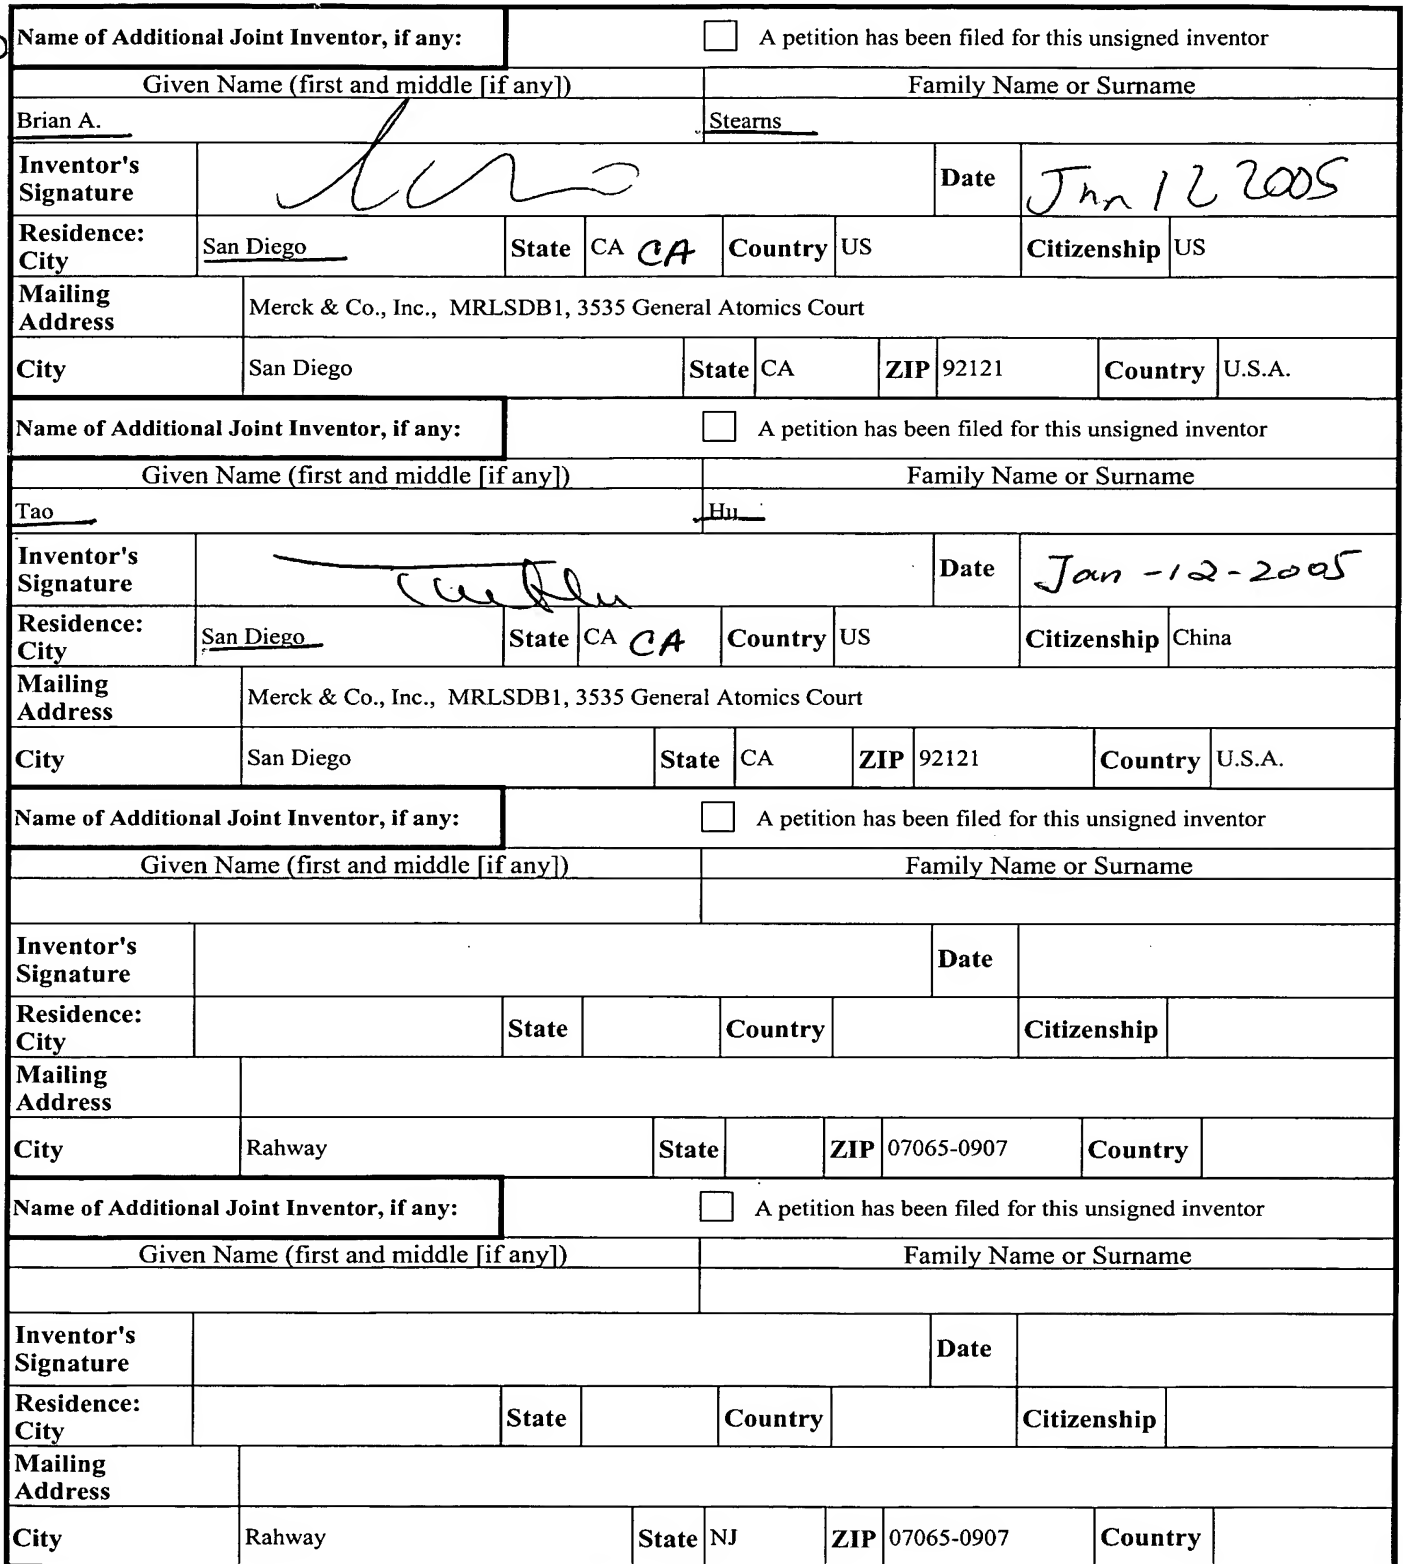 Name of Additional Joint Inventor, if any: A petition has been filed for this unsigned inventor
Given Name (first and middle [if any]) Family Name or Surname
Brian A. Stearns
Inventor's Signature Date Jan 12 2005
Residence: City San Diego State CA CA Country US Citizenship US
Mailing Address Merck & Co., Inc., MRLSDB1, 3535 General Atomics Court
City San Diego State CA ZIP 92121 Country U.S.A.
Name of Additional Joint Inventor, if any: A petition has been filed for this unsigned inventor
Given Name (first and middle [if any]) Family Name or Surname
Tao Hu
Inventor's Signature Date Jan-12-2005
Residence: City San Diego State CA CA Country US Citizenship China
Mailing Address Merck & Co., Inc., MRLSDB1, 3535 General Atomics Court
City San Diego State CA ZIP 92121 Country U.S.A.
Name of Additional Joint Inventor, if any: A petition has been filed for this unsigned inventor
Given Name (first and middle [if any]) Family Name or Surname
Inventor's Signature Date
Residence: City State Country Citizenship
Mailing Address
City Rahway State ZIP 07065-0907 Country
Name of Additional Joint Inventor, if any: A petition has been filed for this unsigned inventor
Given Name (first and middle [if any]) Family Name or Surname
Inventor's Signature Date
Residence: City State Country Citizenship
Mailing Address
City Rahway State NJ ZIP 07065-0907 Country